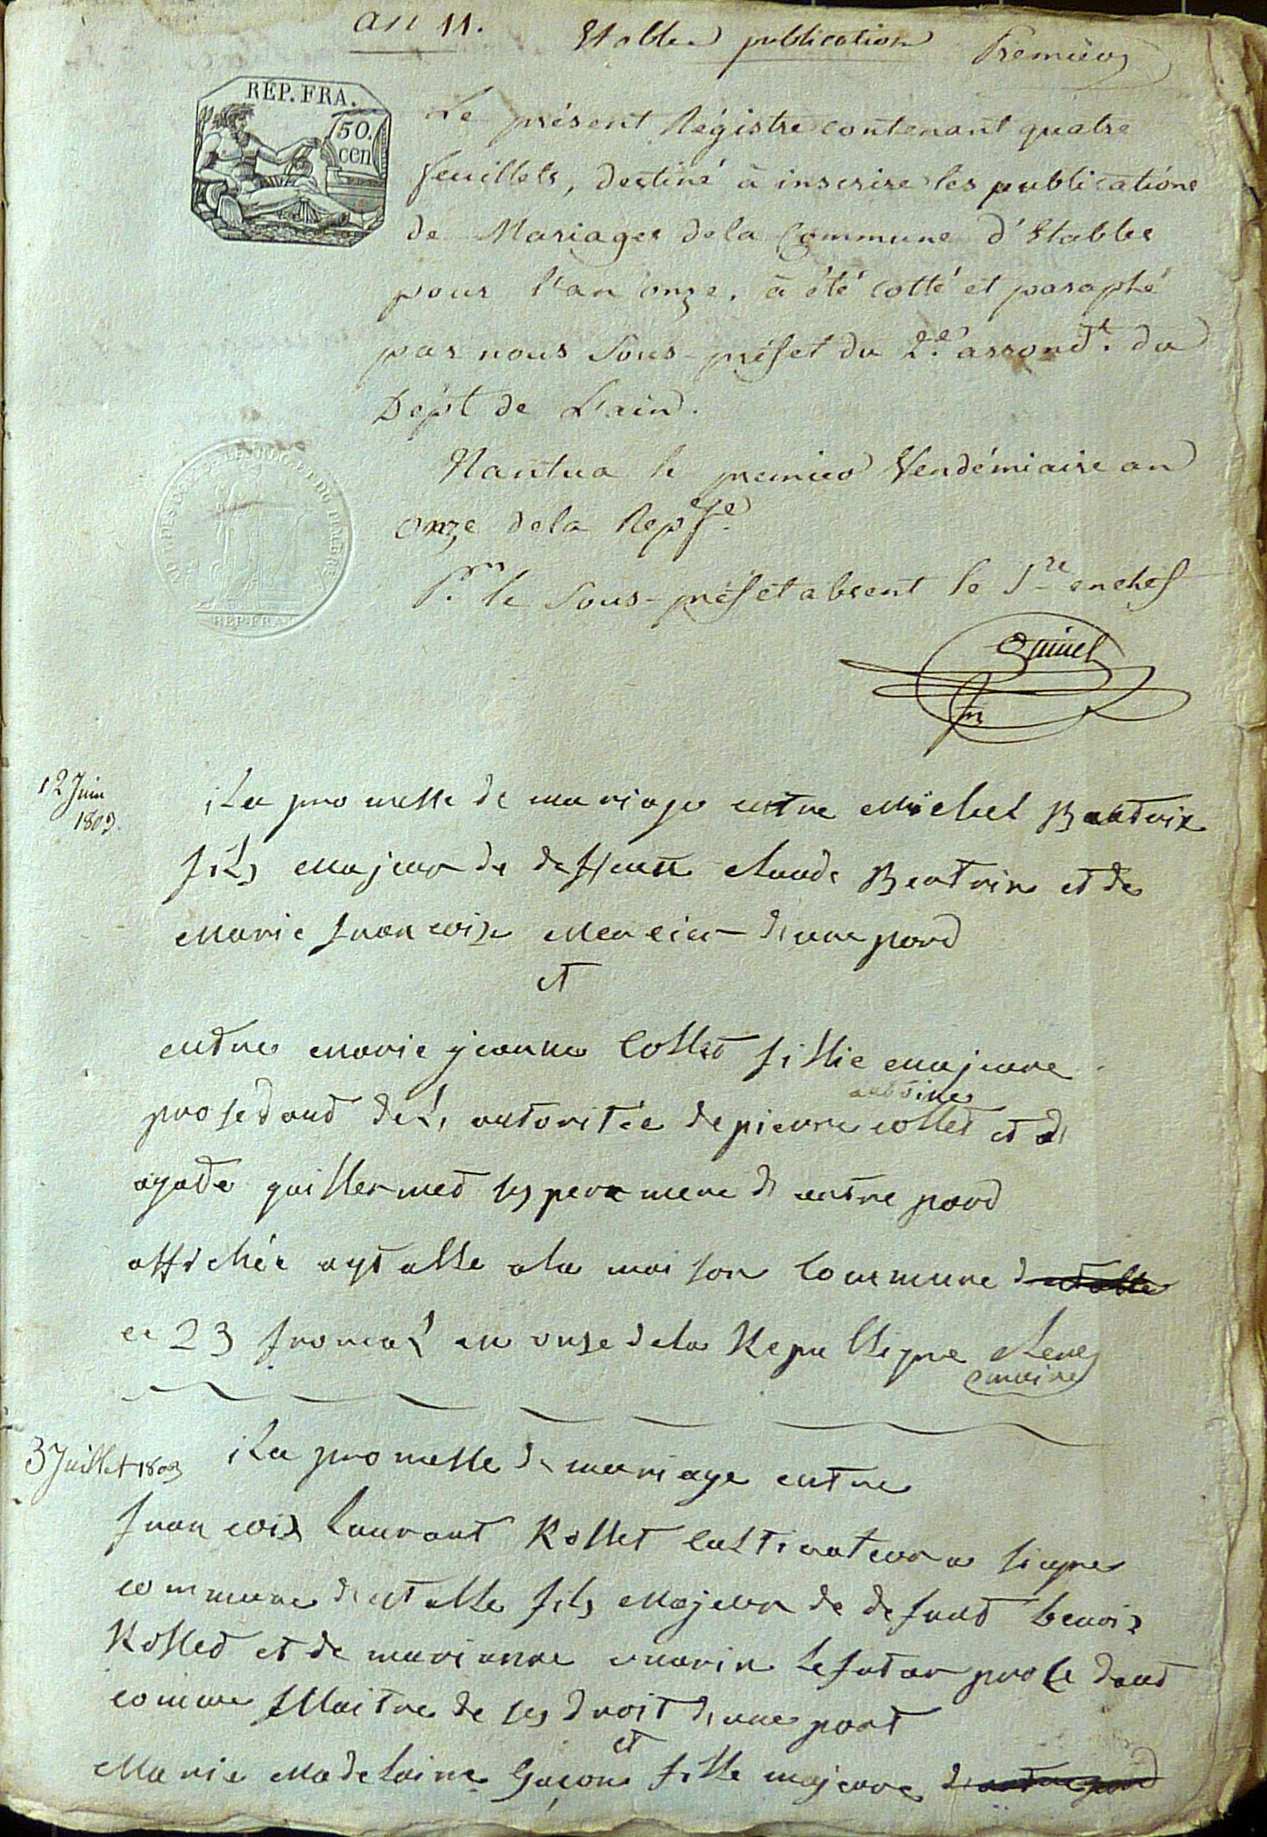 an 11. Etables publication Premier
REP. FRA.
50.
cen
Le présent Régistre contenant quatre
feuillets, destiné à inscrire les publications
de Mariages de la Commune d'Etables
pour l'an onze, à été cotté et paraphé
par nous Sous-préfet du 2.e arrond.t du
Dép.t de L'ain.
Nantua le premier Vendémiaire an
onze de la Rep fe.
P.r le Sous-préfet absent le S.re en chef
REP. FRA
12 Juin
1803
la promesse de mariage entre Michel Beatrix
fils majeur de deffeunt claude Beatrix et de
marie francoise Mercier d'une pard
et
entre marie jeanne Collet fillie majeure
antoine
prosedant de l'autoritée de pierre collet et de
agade guillermed ses pere mere d'autre pard
affichée a la maison Commune
ce 23 an onze de la Republique
maire
3 Juillet 1803
la promesse de mariage entre
francois laurant Rollet cultivateur a
commune d'etable fils majeur de defund benoi
Rolled et de marianne marin le futur prosedant
comme Maitre de ses droit d'une part
et
Marie Madelaine Gaçon fille majeure d'autre pard